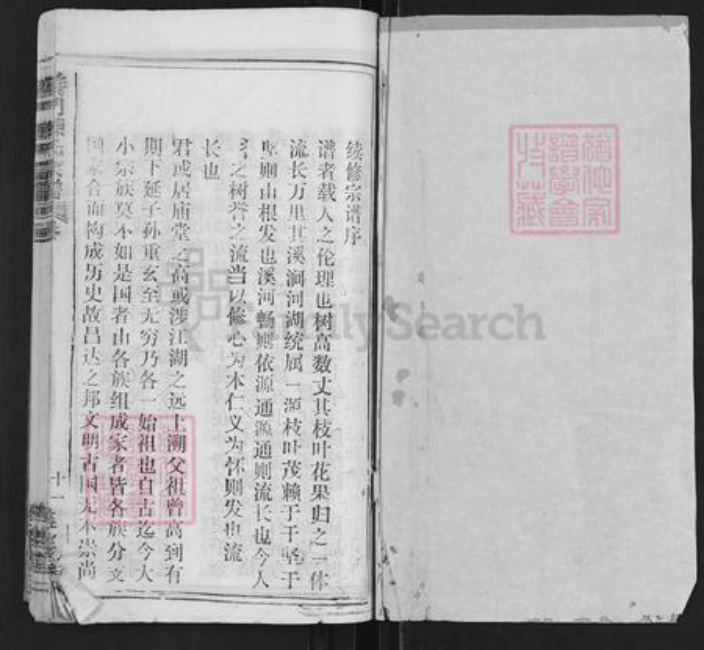 续修宗谱序
谱者载人之伦理也树高数丈其枝叶花果归之一体
流长万里其溪涧河湖统属一源枝叶茂赖于干坚干
坚则由根发也溪河畅则依源通源通则流长也今人
之树誉之流当以修心为本仁义为怀则发也流
长也
君或居庙堂之高或涉江湖之远上溯父祖曾高到有
期下延子孙重玄至无穷乃各一始祖也自古迄今大
小宗族莫不如是国者由各族组成家者皆各族分文
国家合而构成历史故昌达之邦文明古国无不崇尚
十一
FamilySearch
谱学会
收藏